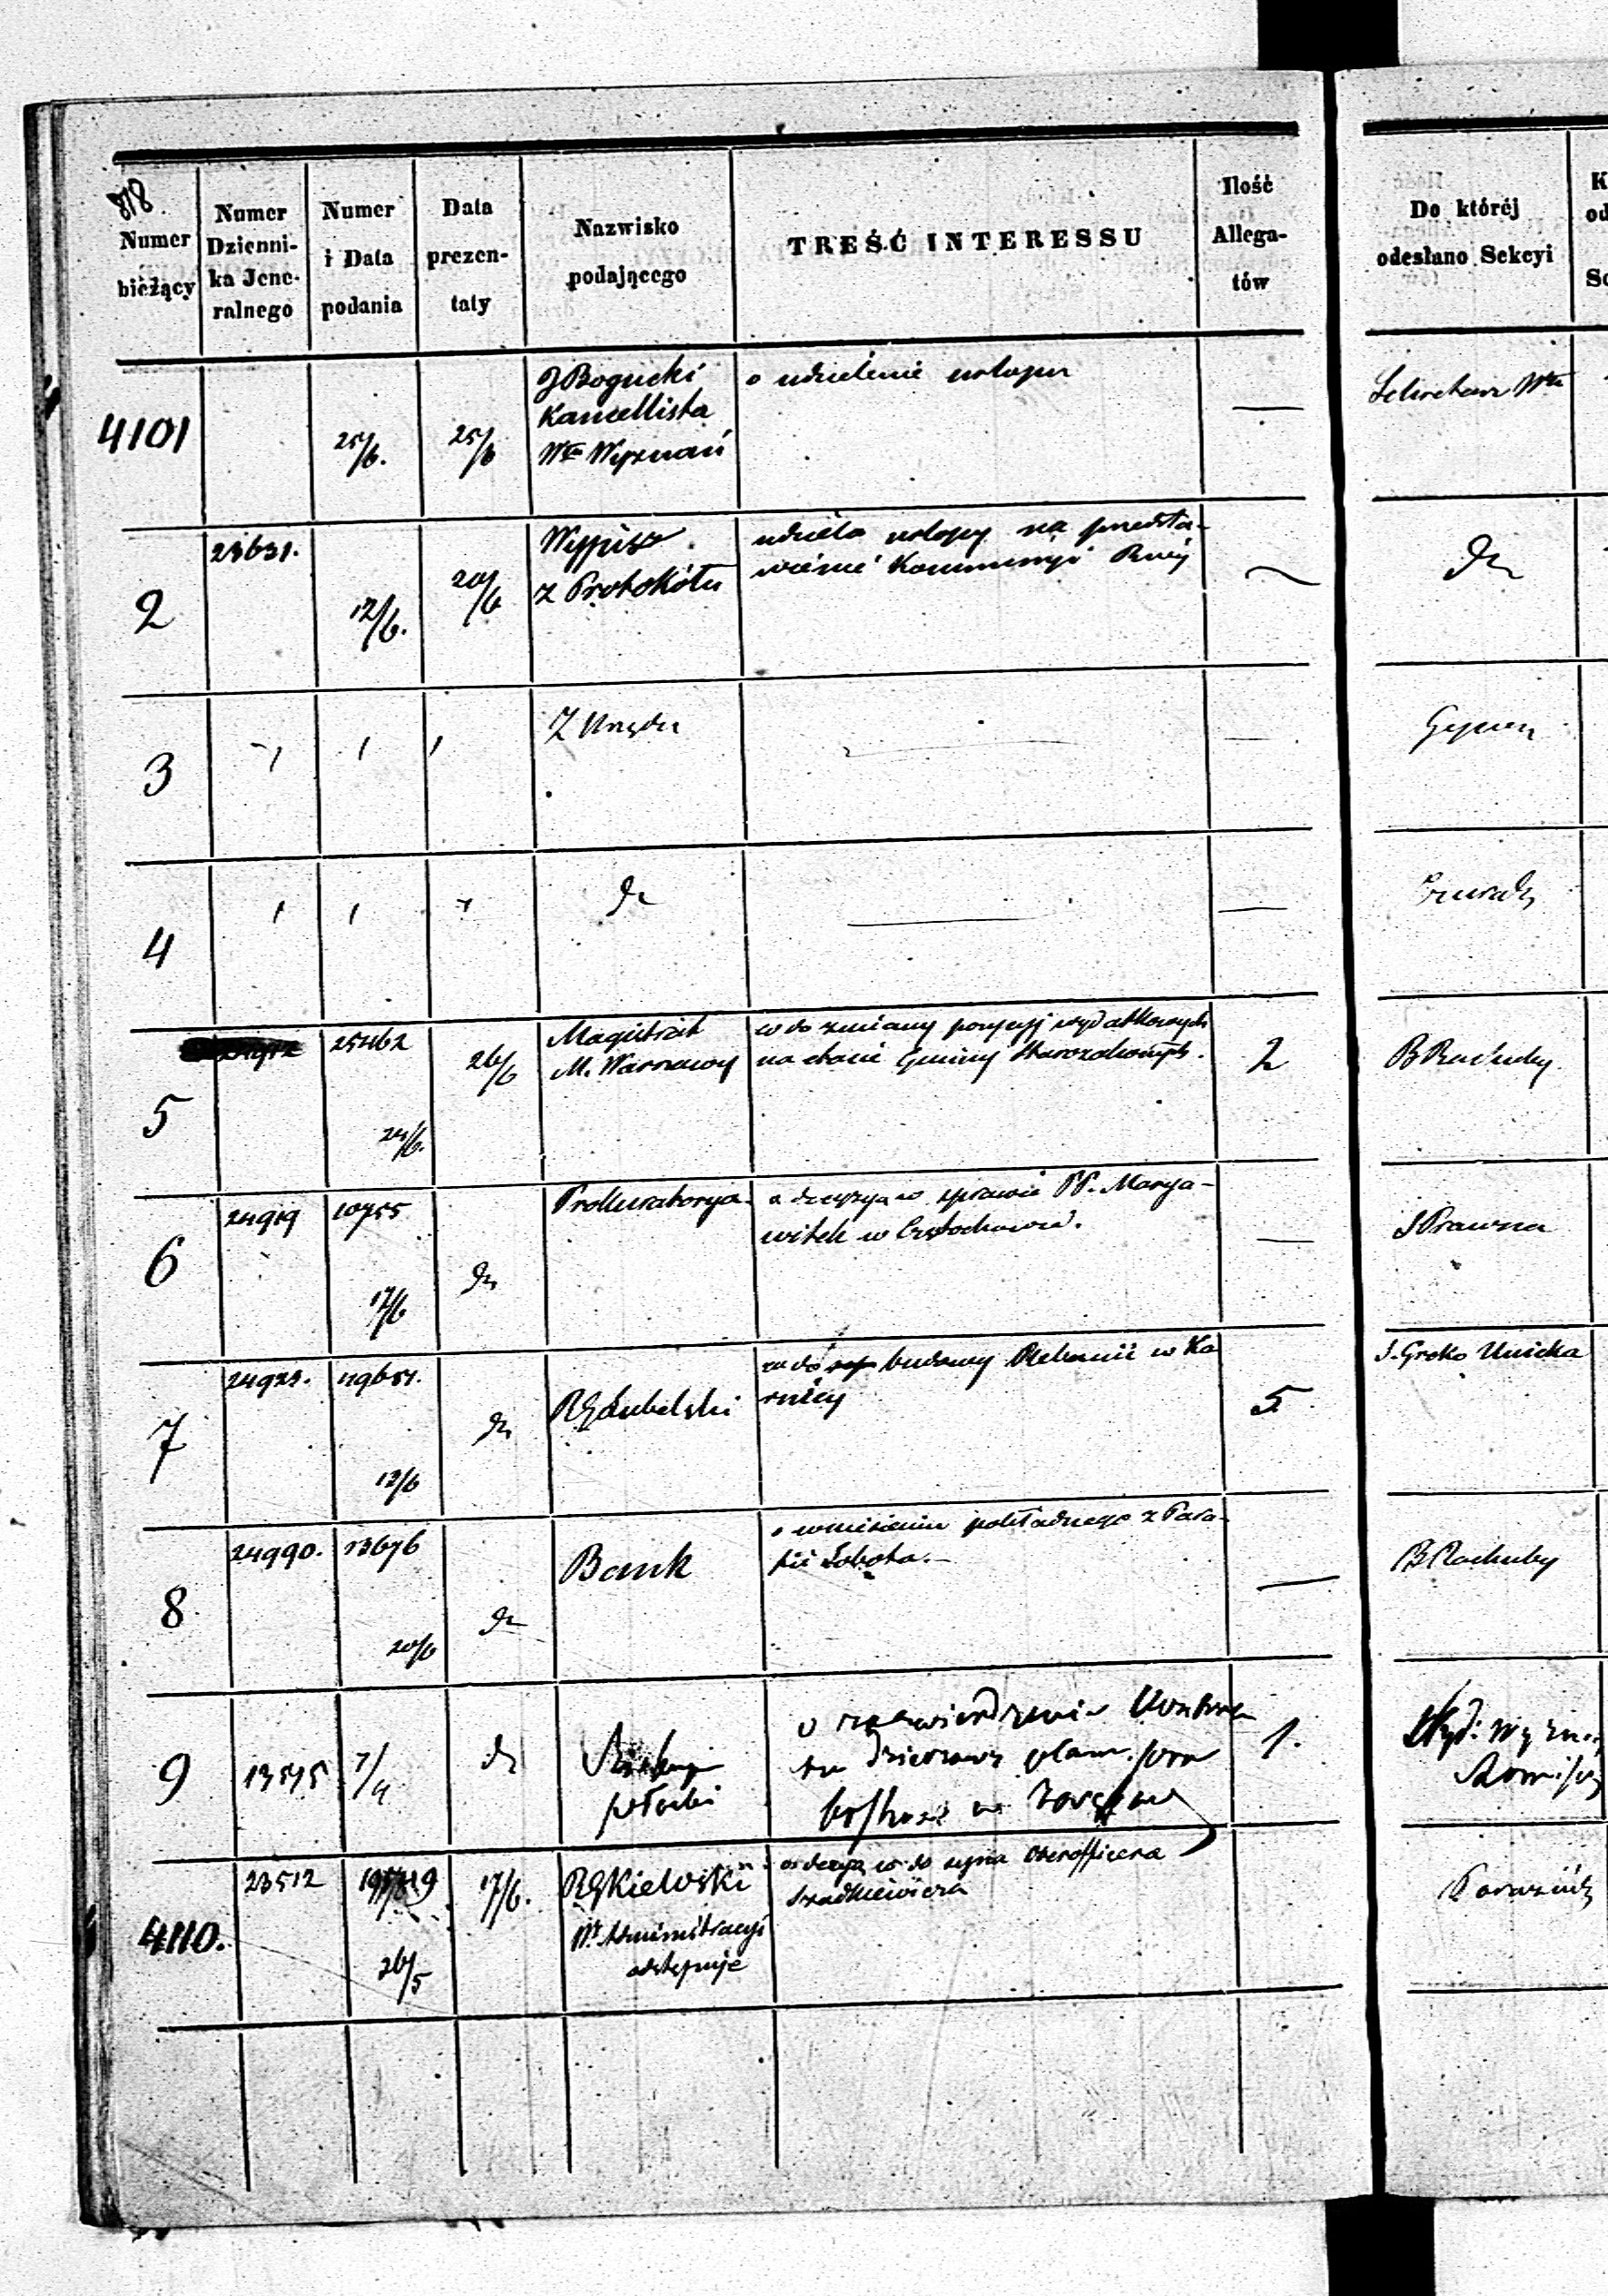 818.
Numer
bieżący
Numer
Dzienni-
ka Jene-
ralnego
Numer
i Data
podania
Data
prezen-
taty
Nazwisko
podającego
TREŚĆ INTERESSU
Ilość
Allega-
tów
Do któréj
odesłano Sekcyi
4101
25/6.
25/6
J Bogucki
Kancellista
Wu Wyznań
o udzielenie urlopu
Sekretarz Wu
2
23631.
12/6.
20/6
Wypis
z Protokółu
udziela urlopy na przedsta-
wienie Kommissyi
dn
3
Z Urzędu
4
dn
5
25462
24/6.
26/6
Magistrat
M. Warszawy
co do zmiany pozycyj wydatkowych
na etacie Gminy Starozakonnych.
2
B Rachuby
6
24919
10755
17/6
dn
Prokuratorya
o decyzyą w sprawie PP. Marya-
witek w Częstochowie.
S Prawna
7
24923.
49651.
13/6
dn
RG Lubelski
co do budowy Plebanii w Ko
rnicy
5
S. Greko Unicka
8
24990.
13676
20/6
dn
Bank
o wniesieniu pokładnego z Para-
fii Sobota.
B Rachuby
9
13515
7/4
dn
o zatwierdzenie Kontrak
tu Dzierżawy
w
1.
4110.
23512
26/5
17/6.
RG Kielecki
Wł Administracyi
odstępuje
o decyzyą co do syna Oberofficera
Szadkiewicza